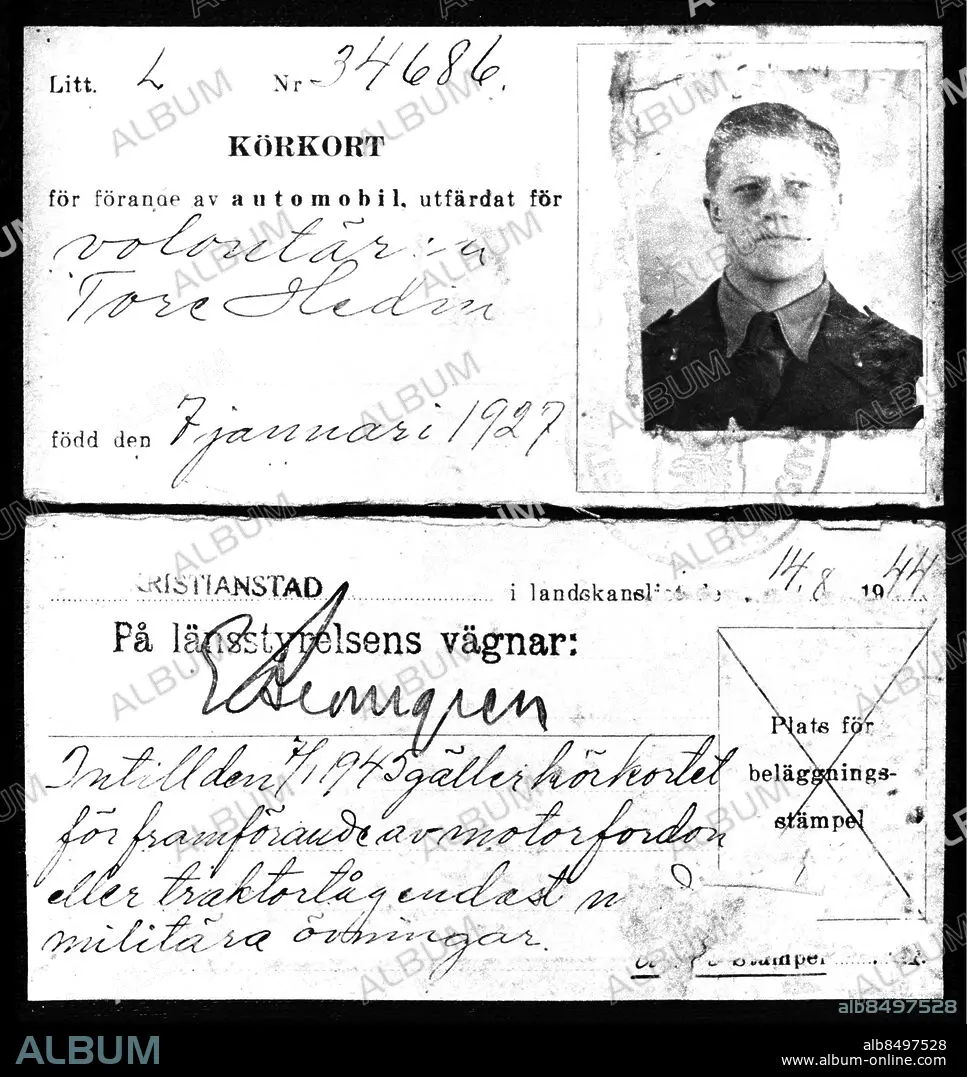 Litt. L Nr 34686.
KÖRKORT
för förande av automobil, utfärdat för
volontär:n
Tore Hedin
född den 7 januari 1927
KRISTIANSTAD i landskansliet den 14. 8 1944
På länsstyrelsens vägnar:
Intill den 7/1 1945 gäller körkortet
för framförande av motorfordon
eller traktortåg endast
militära övningar.
Plats för
beläggnings-
stämpel
Stämpel
ALBUM
alb8497528
ALBUM
alb8497528
www.album-online.com